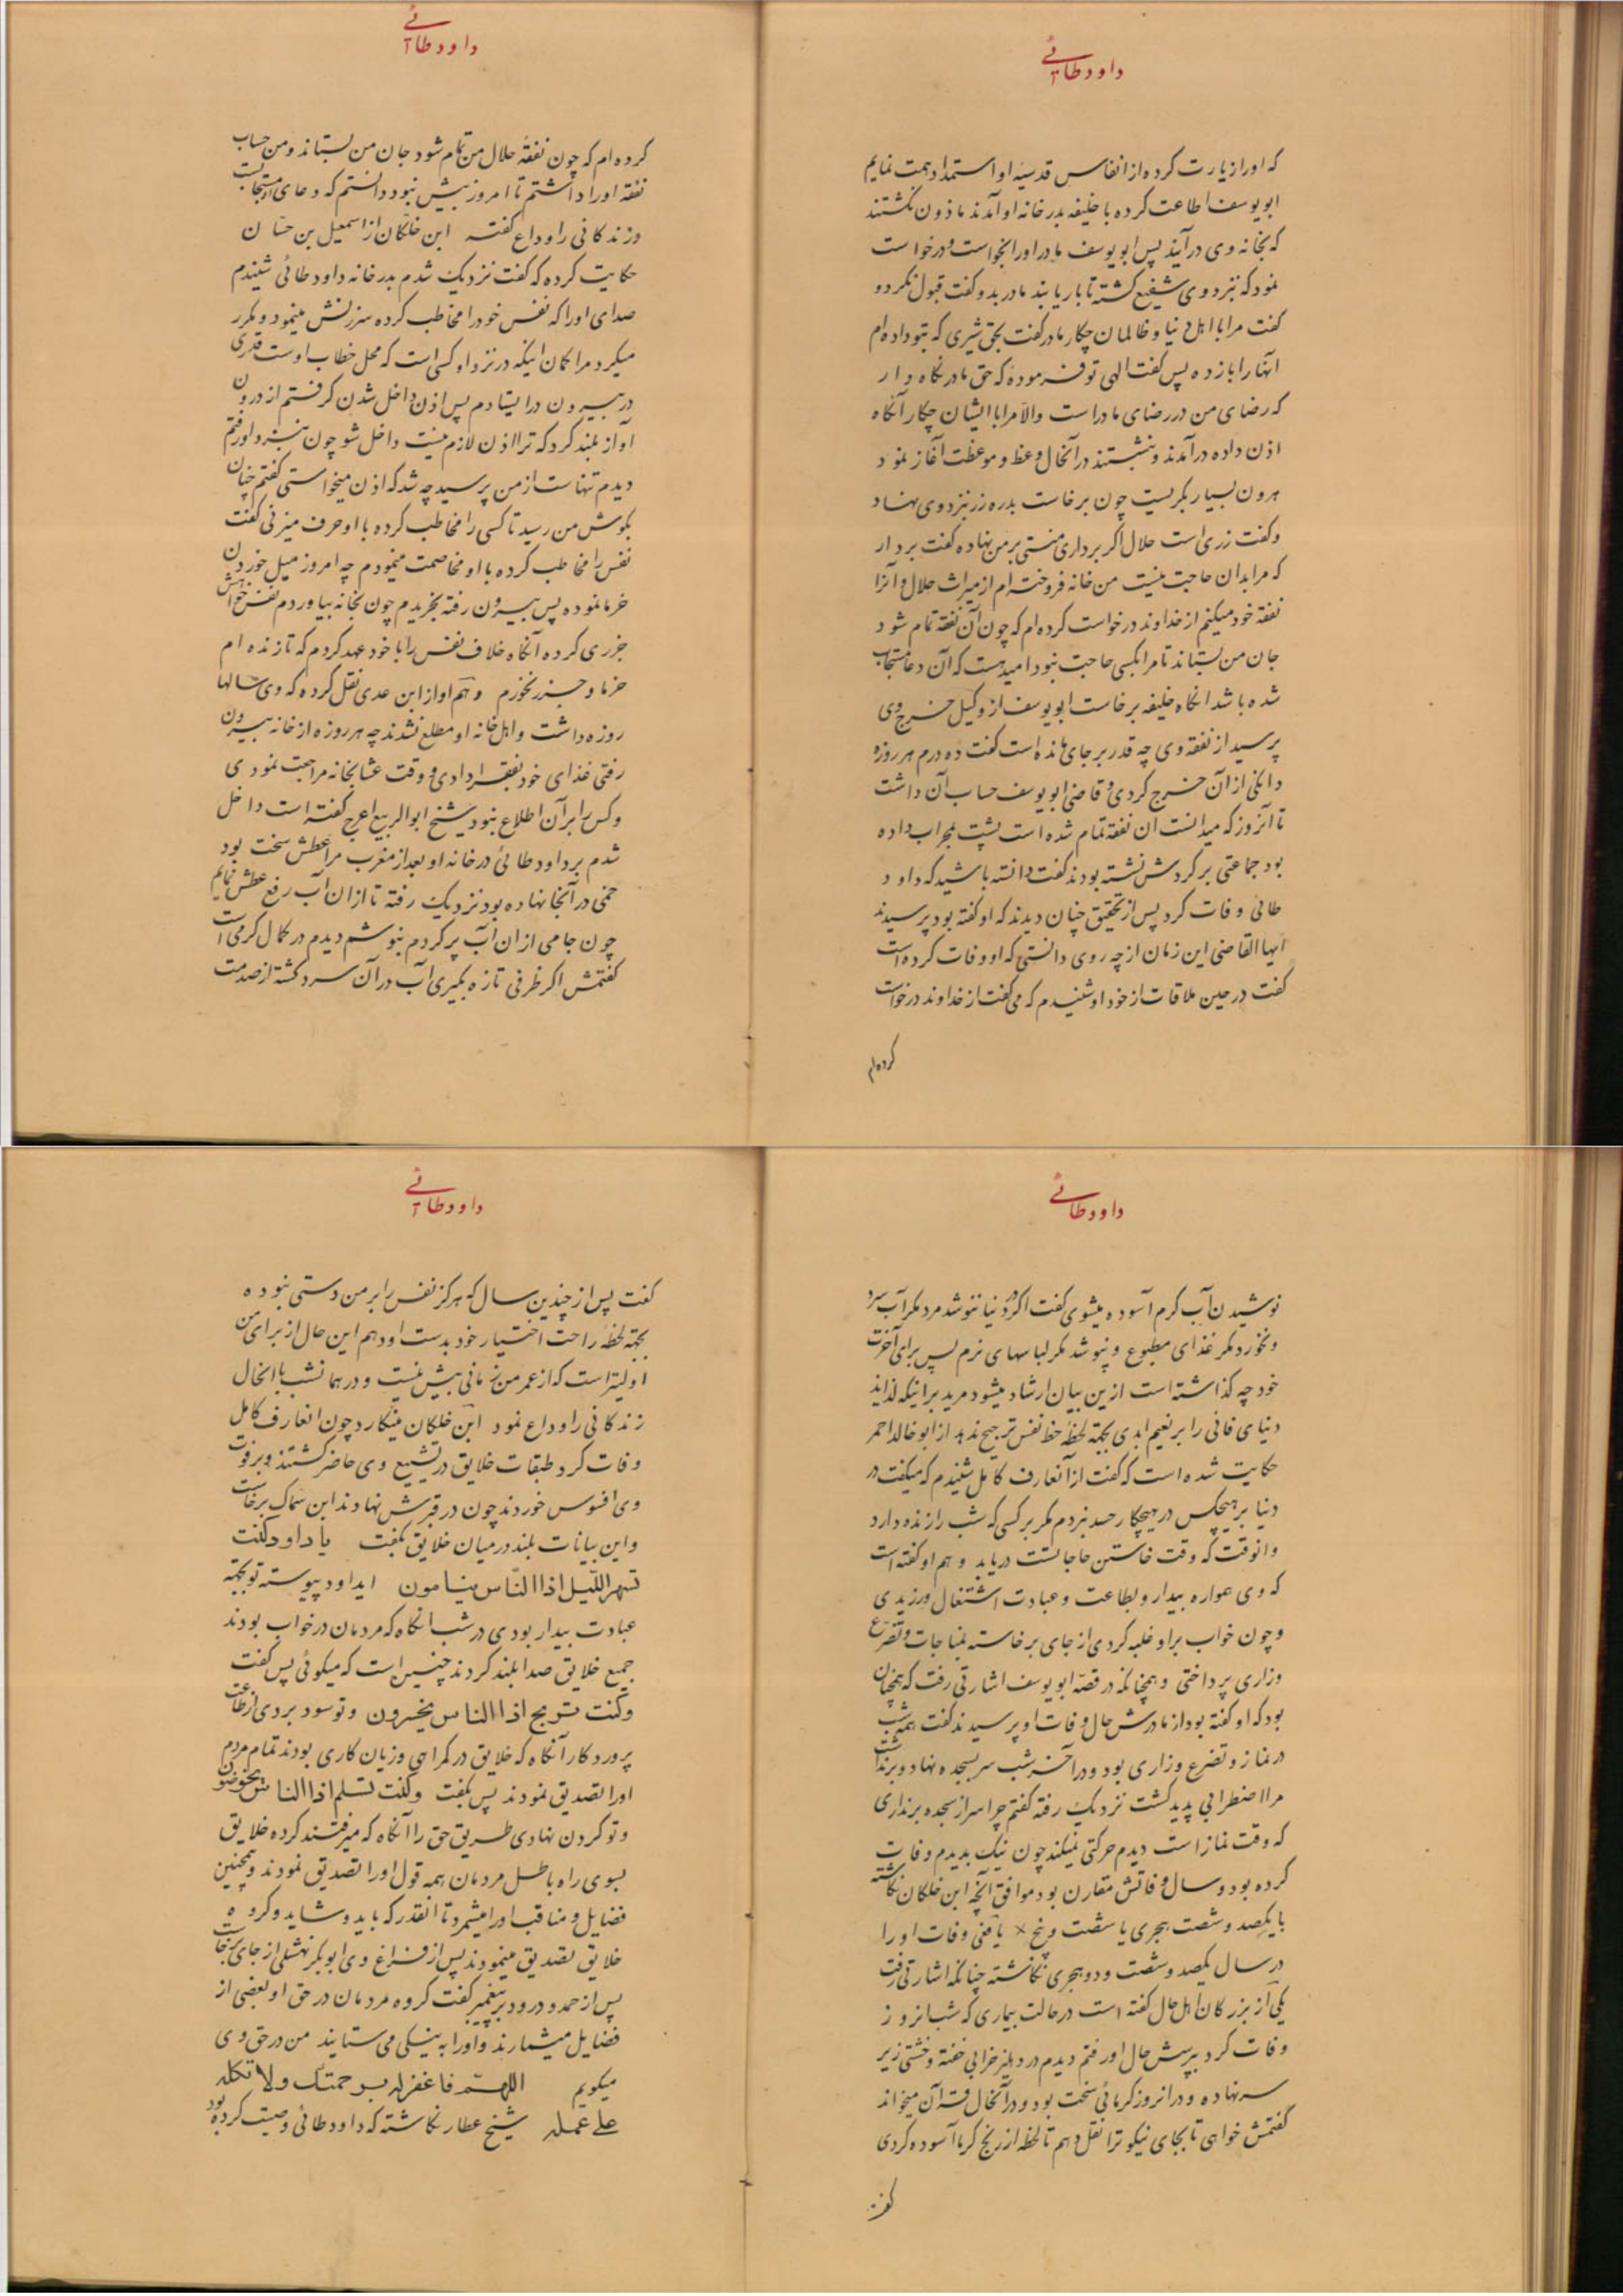 داود طائی
که او را زیارت کرده از انفاس قدسیه او استمداد همت نمایم
ابو یوسف اطاعت کرده با خلیفه بدر خانه او آمدند ماذون نکشتند
که بخانه وی درآیند پس ابو یوسف مادر او را بخواست و درخواست
نمود که نزد وی شفیع کشته تا بار یابند مادر بدو کفت قبول نکرد و
کفت مرا با اهل دنیا و ظالمان چکار مادر کفت بحق شیری که بتو داده‌ام
آنها را بار ده پس کفت الهی تو فرموده که حق مادر نکاه دار
که رضای من در رضای مادر است والا مرا با ایشان چکار آنکاه
اذن داده درآمدند و بنشستند در آنحال وعظ و موعظت آغاز نمود
هرون بسیار بکریست چون برخاست بدره زر نزد وی بنهاد
و کفت زری است حلال اکر برداری منتی بر من نهاده کفت بردار
که مرا بدان حاجت نیست من خانه فروخته‌ام از میراث حلال و آنرا
نفقه خود میکنم از خداوند درخواست کرده‌ام که چون آن نفقه تمام شود
جان من بستاند تا مرا بکسی حاجت نبود امید هست که آن دعا مستجاب
شده باشد انکاه خلیفه برخاست ابو یوسف از وکیل خرج وی
پرسید از نفقه وی چه قدر بر جای مانده است کفت ده درم هر روزه
دانکی از آن خرج کردی و قاضی ابو یوسف حساب آن داشت
تا آنروز که میدانست آن نفقه تمام شده است پشت بمحراب داده
بود جماعتی بر کردش نشسته بودند کفت دانسته باشید که داود
طائی وفات کرد پس از تحقیق چنان دیدند که او کفته بود پرسیدند
ایها القاضی این زمان از چه روی دانستی که او وفات کرده است
کفت در حین ملاقات از خود او شنیدم که می کفت از خداوند درخواست
کرده‌ام
داود طائی
کرده‌ام که چون نفقه حلال من تمام شود جان من بستاند و من حساب
نفقه او را داشتم تا امروز بیش نبود دانستم که دعای او مستجابست
و زندکانی را وداع کفته ابن خلکان از اسمعیل بن حسان
حکایت کرده که کفت نزدیک شدم بدر خانه داود طائی شنیدم
صدای او را که نفس خود را مخاطب کرده سرزنش مینمود و مکرر
میکرد مرا کمان اینکه در نزد او کسی است که محل خطاب اوست قدری
در بیرون در ایستادم پس اذن داخل شدن کرفتم از درون
آواز بلند کرد که ترا اذن لازم نیست داخل شو چون بنزد او رفتم
دیدم تنهاست از من پرسید چه شد که اذن میخواستی کفتم چنان
بکوش من رسید تا کسی را مخاطب کرده با او حرف میزنی کفت
نفس را مخاطب کرده با او مخاصمت مینمودم چه امروز میل خوردن
خرما نموده پس بیرون رفته بخریدم چون بخانه بیاوردم نفس خواهش
جزری کرده آنکاه خلاف نفس را با خود عهد کردم که تا زنده‌ام
خرما و جزر نخورم و هم او از ابن عدی نقل کرده که وی سالها
روزه داشت و اهل خانه او مطلع نشدند چه هر روزه از خانه بیرون
رفتی غذای خود بفقرا دادی و وقت عشا بخانه مراجعت نمودی
و کس را بر آن اطلاع نبود شیخ ابو الربیع اعرج کفته است داخل
شدم بر داود طائی در خانه او بعد از مغرب مرا عطش سخت بود
خمی در آنجا نهاده بود نزدیک رفته تا از ان آب رفع عطش نمایم
چون جامی از ان آب پر کردم بنوشم دیدم در کمال کرمی است
کفتمش اکر ظرفی تازه بکیری آب در آن سرد کشته از صدمت
داود طائی
نوشیدن آب کرم آسوده میشوی کفت اکر در دنیا ننوشد مرد مکر آب سرد
و نخورد مکر غذای مطبوع و نپوشد مکر لباسهای نرم پس برای آخرت
خود چه کذاشته است ازین بیان ارشاد میشود مرید بر اینکه لذاید
دنیای فانی را بر نعیم ابدی بجهة لحظه حظ نفس ترجیح ندهد از ابو خالد احمر
حکایت شده است که کفت از آنعارف کامل شنیدم که میکفت در
دنیا بر هیچکس در هیچکار حسد نبردم مکر بر کسی که شب را زنده دارد
و انوقت که وقت خاستن حاجاتست دریابد و هم او کفته است
که وی همواره بیدار و بطاعت و عبادت اشتغال ورزیدی
و چون خواب بر او غلبه کردی از جای برخاسته بمناجات و تضرع
و زاری پرداختی و همچنانکه در قصه ابو یوسف اشارتی رفت که همچنان
بود که او کفته بود از مادرش حال وفات او پرسیدند کفت همه شب
در نماز و تضرع و زاری بود و در آخر شب سر بسجده نهاد و برنداشت
مرا اضطرابی پدید کشت نزدیک رفته کفتم چرا سر از سجده برنداری
که وقت نماز است دیدم حرکتی نمیکند چون نیک بدیدم وفات
کرده بود و سال وفاتش مقارن بود موافق آنچه ابن خلکان نکاشته
با یکصد و شصت هجری یا شصت و پنج یافعی وفات او را
در سال یکصد و شصت و دو هجری نکاشته چنانکه اشارتی رفت
یکی از بزرکان اهل حال کفته است در حالت بیماری که شبانروز
وفات کرد بپرسش حال او رفتم دیدم در دهلیز خرابی خفته و خشتی زیر
سر نهاده و در انروز کرمائی سخت بود و در آنحال قرآن میخواند
کفتمش خواهی تا بجای نیکو ترا نقل دهم تا لحظه از رنج کرما آسوده کردی
کفت
داود طائی
کفت پس از چندین سال که هرکز نفس را بر من دستی نبوده
بجهة لحظه راحت اختیار خود بدست او دهم این حال از برای من
اولیتر است که از عمر من زمانی بیش نیست و در همانشب با انحال
زندکانی را وداع نمود ابن خلکان مینکارد چون انعارف کامل
وفات کرد طبقات خلایق در تشییع وی حاضر کشتند و بر فوت
وی افسوس خوردند چون در قبرش نهادند ابن سماک برخاست
و این بیانات بلند در میان خلایق بکفت یا داود کنت
تسهر اللّیل اذا النّاس ینامون ایداود پیوسته تو بجهة
عبادت بیدار بودی در شب انکاه که مردمان در خواب بودند
جمیع خلایق صدا بلند کردند چنین است که میکوئی پس کفت
وکنت تربح اذا الناس یخسرون و تو سود بردی از طاعت
پروردکار آنکاه که خلایق در کمراهی و زیان کاری بودند تمام مردم
او را تصدیق نمودند پس بکفت وکنت تسلم اذا الناس یخوضون
و تو کردن نهادی طریق حق را آنکاه که میرفتند کرده خلایق
بسوی راه باطل مردمان همه قول او را تصدیق نمودند و همچنین
فضایل و مناقب او را میشمرد تا انقدر که باید و شاید و کروه
خلایق تصدیق مینمودند پس از فراغ وی ابو بکر نهشلی از جای برخاست
پس از حمد و درود بر پیغمبر کفت کروه مردمان در حق او بعضی از
فضایل میشمارند و او را به نیکی می ستایند من در حق وی
میکویم اللهمّ فاغفر له برحمتک ولا تکله
علی عمله شیخ عطار نکاشته که داود طائی وصیت کرده بود